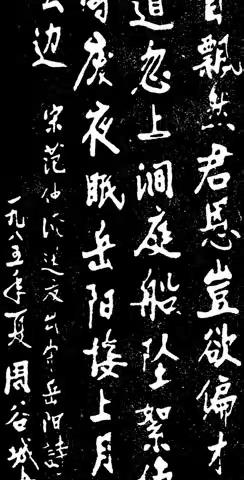 自飘然君恩豈欲偏才
道忽上洞庭船坠絮
廢夜眠岳阳楼上月
边
宋范仲淹送友出守岳阳诗
一九八五年夏 周谷城